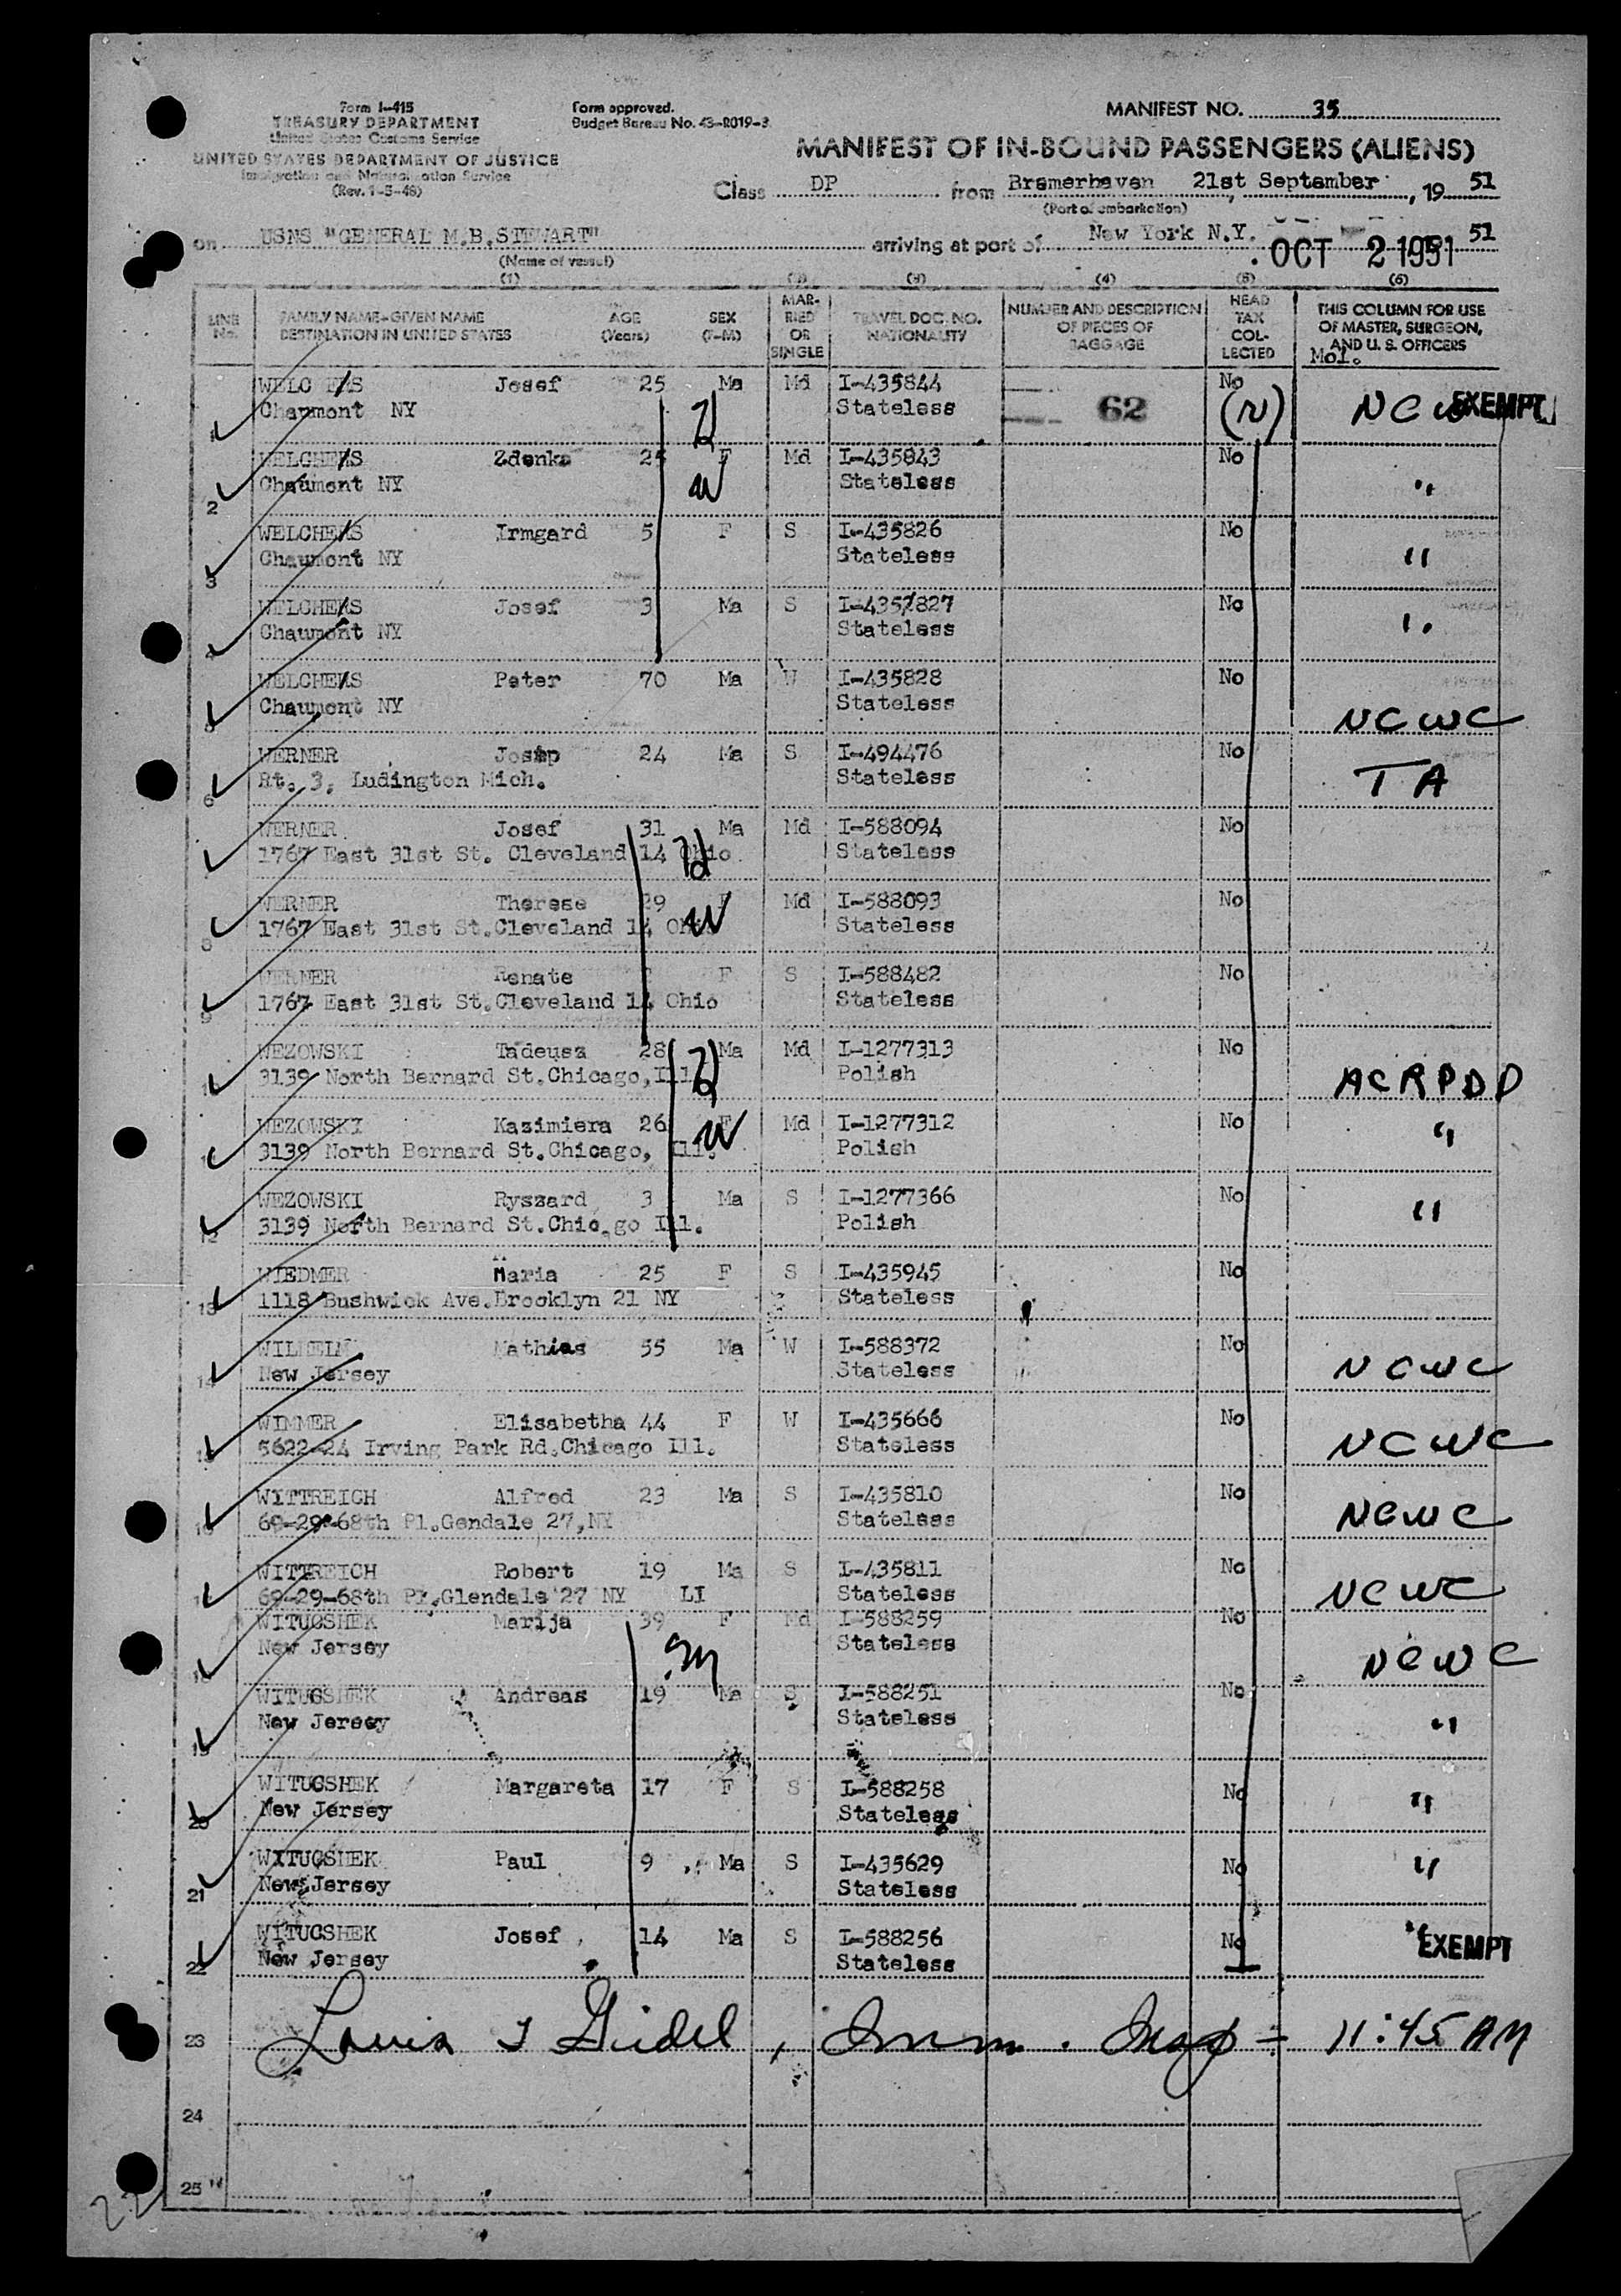 Form I-415
TREASURY DEPARTMENT
United States Customs Service
UNITED STATES DEPARTMENT OF JUSTICE
Immigration and Naturalization Service
(Rev. 1-3-48)
Form approved.
Budget Bureau No. 43-R019-3
MANIFEST NO. 35
MANIFEST OF IN-BOUND PASSENGERS (ALIENS)
Class DP from Bremerhaven 21st September, 1951
(Port of embarkation)
on USNS "GENERAL M.B.STEWART" arriving at port of New York N.Y. OCT 2 1951 51
(Name of vessel)
(1) (2) (3) (4) (5) (6)
LINE No. FAMILY NAME-GIVEN NAME DESTINATION IN UNITED STATES AGE (Years) SEX (F-M) MARRIED OR SINGLE TRAVEL DOC. NO. NATIONALITY NUMBER AND DESCRIPTION OF PIECES OF BAGGAGE HEAD TAX COLLECTED THIS COLUMN FOR USE OF MASTER, SURGEON, AND U. S. OFFICERS
Mol.
WELC Josef 25 Ma Md I-435844 No
Chaumont NY Stateless 62 (N) NCW EXEMPT
WELCHERS Zdenka 25 F Md I-435843 No
2 Chaumont NY W Stateless "
WELCHERS Irmgard 5 F S I-435826 No
3 Chaumont NY Stateless "
WELCHERS Josef 3 Ma S I-435827 No
4 Chaumont NY Stateless "
WELCHERS Peter 70 Ma W I-435828 No
5 Chaumont NY Stateless NCWC
WERNER Josip 24 Ma S I-494476 No
6 Rt. 3, Ludington Mich. Stateless TA
WERNER Josef 31 Ma Md I-588094 No
1767 East 31st St. Cleveland 14 Ohio Stateless
WERNER Therese 29 F Md I-588093 No
8 1767 East 31st St.Cleveland 14 Ohio W Stateless
WERNER Renate F S I-588482 No
9 1767 East 31st St.Cleveland 14 Ohio Stateless
WEZOWSKI Tadeusz 28 Ma Md I-1277313 No
3139 North Bernard St.Chicago,Ill. Polish ACRPDP
WEZOWSKI Kazimiera 26 F Md I-1277312 No
3139 North Bernard St.Chicago, Ill. W Polish "
WEZOWSKI Ryszard 3 Ma S I-1277366 No
12 3139 North Bernard St.Chicago Ill. Polish "
WIEDMER Maria 25 F S I-435945 No
13 1118 Bushwick Ave.Brooklyn 21 NY Stateless
WILHELM Mathias 55 Ma W I-588372 No
14 New Jersey Stateless NCWC
WIMMER Elisabetha 44 F W I-435666 No
15 5622-24 Irving Park Rd.Chicago Ill. Stateless NCWC
WITTREICH Alfred 23 Ma S I-435810 No
16 69-29-68th Pl.Gendale 27,NY Stateless NCWC
WITTREICH Robert 19 Ma S I-435811 No
69-29-68th Pl.Glendale 27 NY LI Stateless NCWC
WITUCSHEK Marija 39 F Md I-588259 No
18 New Jersey Stateless NCWC
WITUCSHEK Andreas 19 Ma S I-588251 No
19 New Jersey Stateless "
WITUCSHEK Margareta 17 F S I-588258 No
20 New Jersey Stateless "
WITUCSHEK Paul 9 Ma S I-435629 No
21 New Jersey Stateless "
WITUCSHEK Josef 14 Ma S I-588256 No
22 New Jersey Stateless " EXEMPT
23 Louis Gidel, Imm. Insp - 11:45 AM
24
25
22